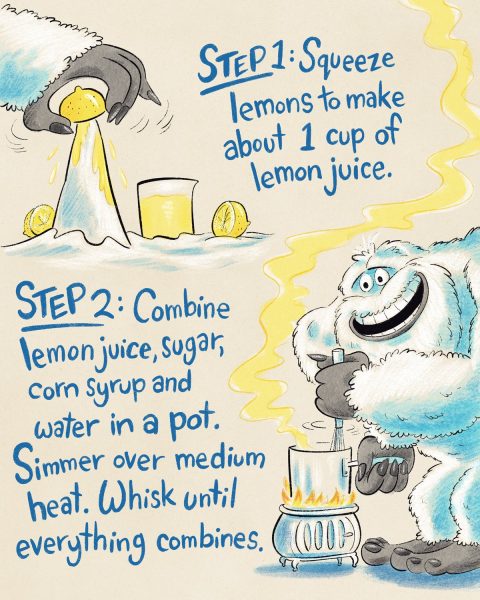 STEP 1: Squeeze
lemons to make
about 1 cup of
lemon juice.
STEP 2: Combine
lemon juice, sugar,
corn syrup and
water in a pot.
Simmer over medium
heat. Whisk until
everything combines.